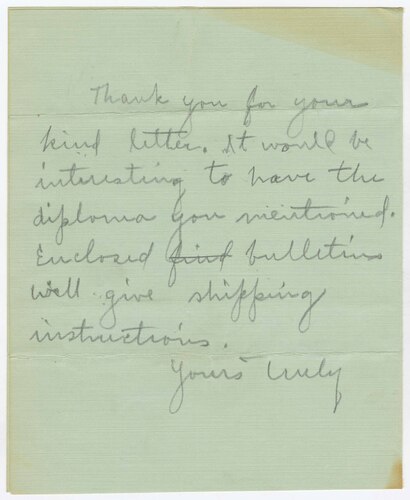 Thank you for your
kind letter. It would be
interesting to have the
diploma you mentioned.
Enclosed find bulletins
will give shipping
instructions.
Yours truly